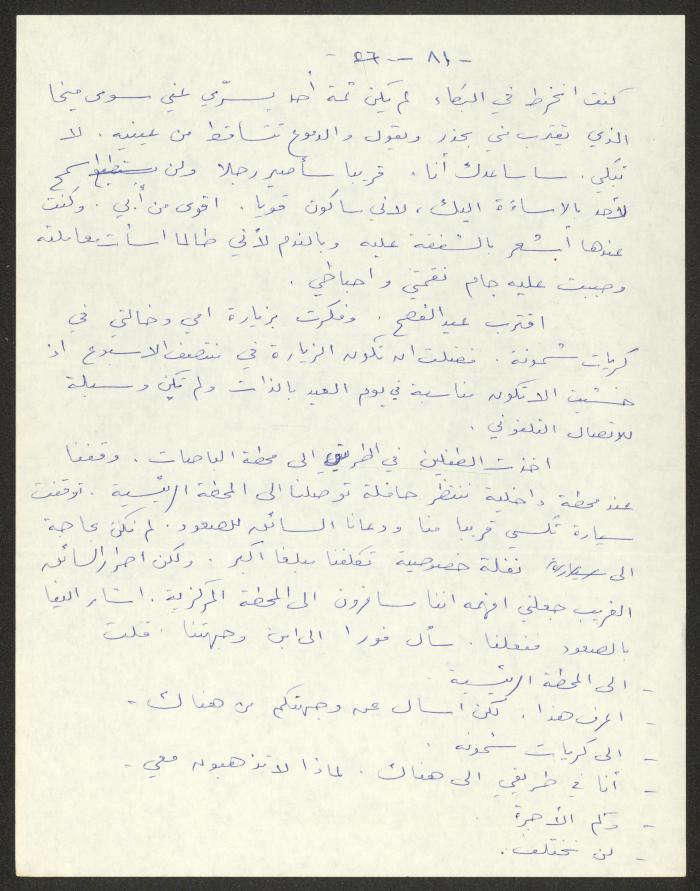 - ٨١ - ٢٦ -
كنت انخرط في البكاء لم يكن ثمة أحد يسرّي عني سوى ميخا
الذي يقترب مني بحذر ويقول والدموع تتساقط من عينيه. لا
تبكي. ساساعدك أنا. قريبا سأصير رجلا ولن يستطيع اسمح
لأحد بالاساءة اليك، لاني ساكون قويا. اقوى من أبي. وكنت
عندها أشعر بالشفقة عليه وبالندم لأني طالما اسأت معاملته
وصببت عليه جام نقمتي واحباطي.
اقترب عيد الفصح. وفكرت بزيارة امي وخالتي في
كريات شمونة. فضلت ان تكون الزيارة في منتصف الاسبوع اذ
خشيت الا تكون مناسبة في يوم العيد بالذات ولم تكن وسيلة
للاتصال التلفوني.
اخذت الطفلين في الطريق الى محطة الباصات. وقفنا
عند محطة داخلية ننتظر حافلة توصلنا الى المحطة الرئيسية. توقفت
سيارة تكسي قريبا منا ودعانا السائق للصعود. لم نكن بحاجة
الى سيارة نقلة خصوصية تكلفنا مبلغا اكبر. ولكن اصرار السائق
الغريب جعلني افهمه اننا مسافرون الى المحطة المركزية. اشار الينا
بالصعود ففعلنا. سأل فورا الى اين وجهتنا. قلت
- الى المحطة الرئيسية.
- اعرف هذا. لكن اسأل عن وجهتكم من هناك.
- الى كريات شمونه.
- أنا في طريقي الى هناك. لماذا لا تذهبون معي.
- وكم الأجرة
- لن نختلف.